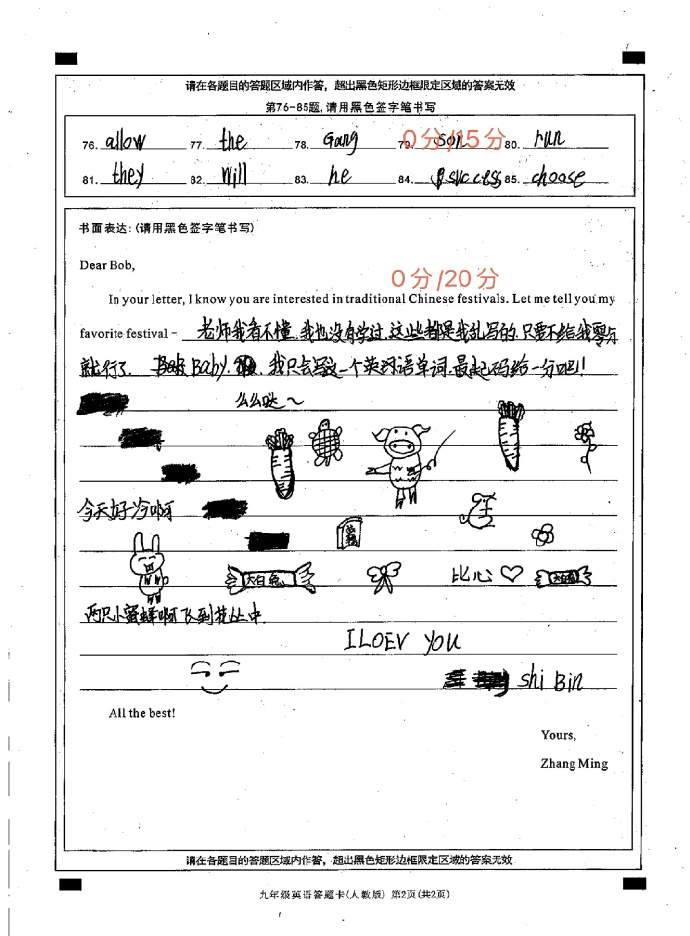 请在各题目的答题区域内作答，超出黑色矩形边框限定区域的答案无效
第76-85题,请用黑色签字笔书写
76. allow 77. the 78. Gang 79. son 80. run
0分/15分
81. they 82. will 83. he 84. success 85. choose
书面表达:(请用黑色签字笔书写)
Dear Bob,
0分/20分
In your letter, I know you are interested in traditional Chinese festivals. Let me tell you my
favorite festival - 老师我看不懂,我也没有学过,这些都是我乱写的,只要不给我零分
就行了. Baby. 我只会写这一个英汉语单词,最起码给一分吧!
么么哒~
今天好冷啊
大白兔
比心
两只小蜜蜂啊飞到花丛中
I LOEV YOU
shi Bin
All the best!
Yours,
Zhang Ming
请在各题目的答题区域内作答，超出黑色矩形边框限定区域的答案无效
九年级英语答题卡(人教版) 第2页(共2页)